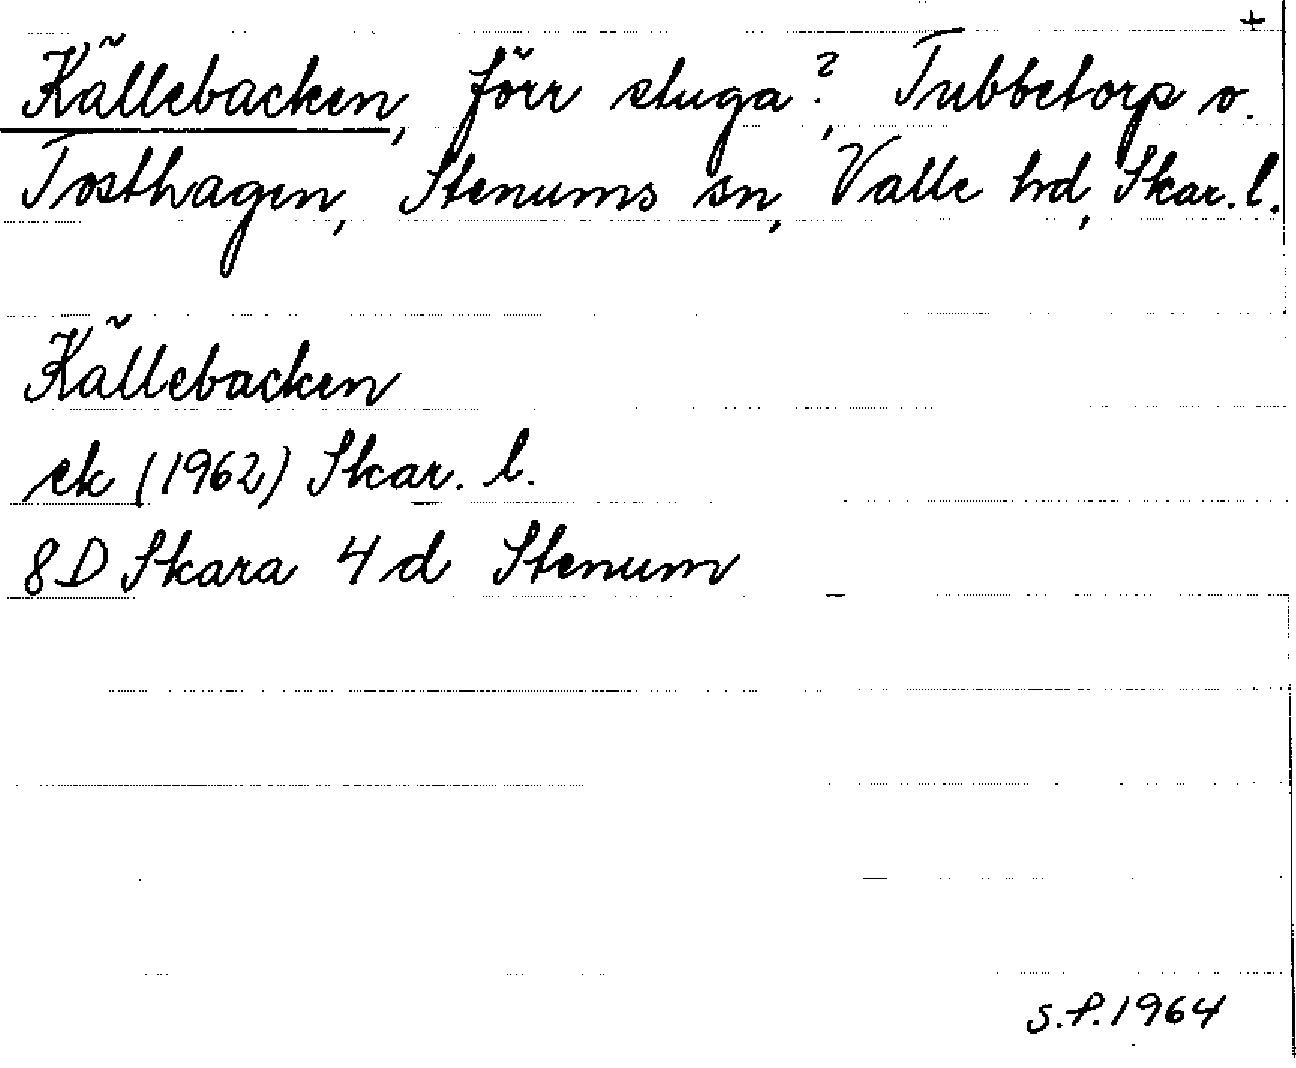 +
Källebacken, förr stuga?, Tubbetorp o.
Tosthagen, Stenums sn, Valle hd, Skar. l.
Källebacken
ek (1962) Skar. l.
8D Skara 4d Stenum
S.P. 1964